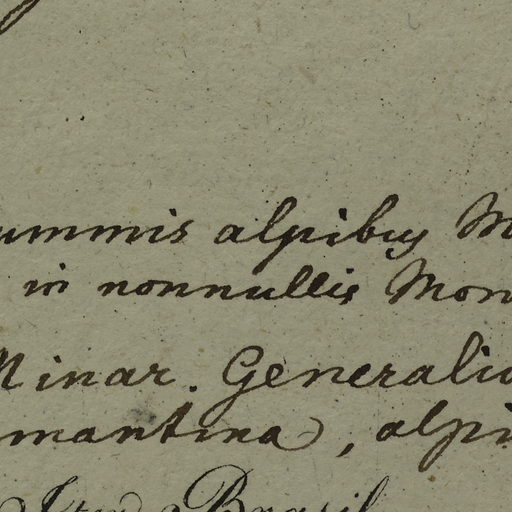 ummis alpibus M
in nonnullis Mon
Minar. Generaliu
mantina, alpi
Iter Brasil